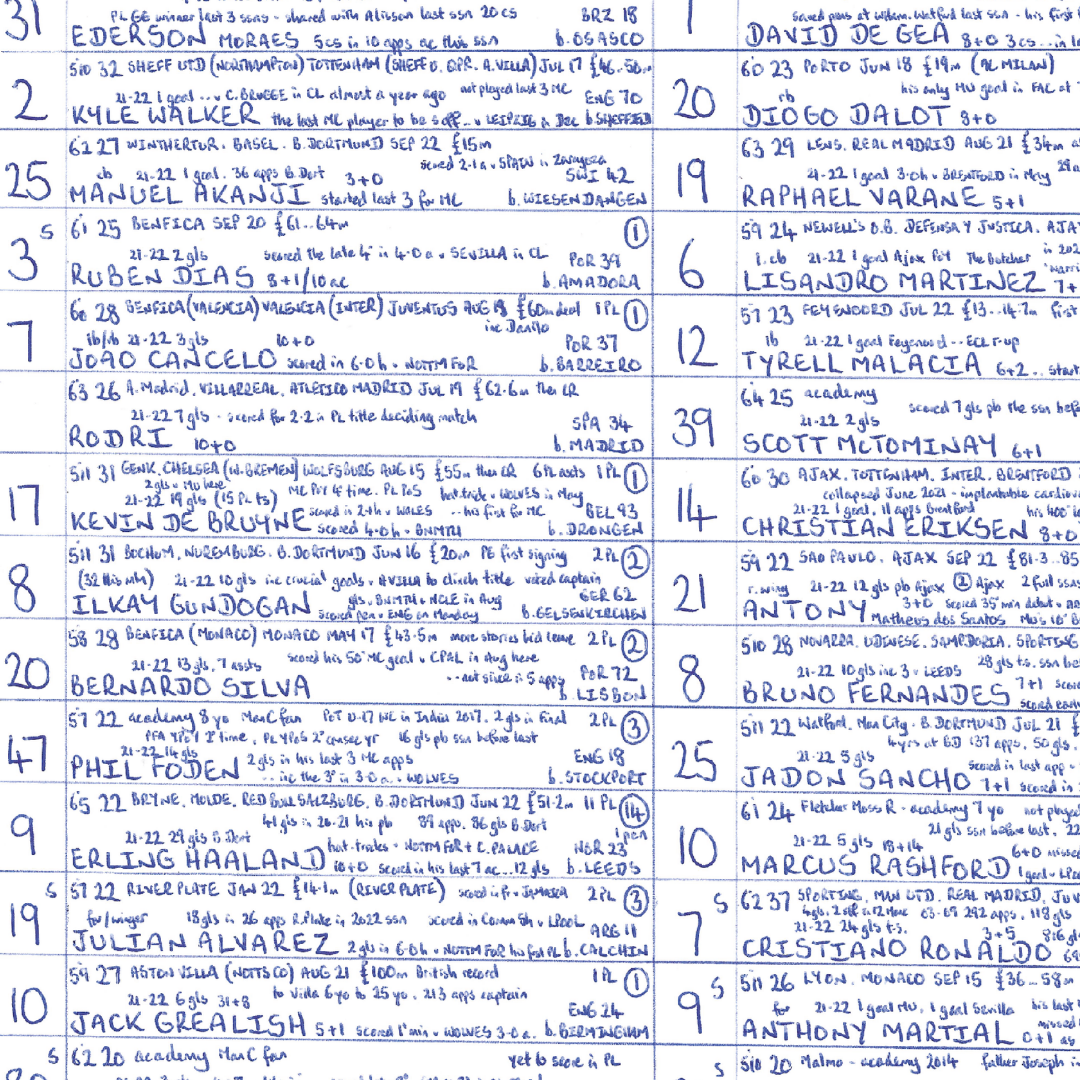 31
PL GG winner last 3 ssns - shared with Alisson last ssn 20cs BRZ 18
EDERSON MORAES 5cs in 10 apps ac this ssn b.OSASCO
2
510 32 SHEFF UTD (NORTHAMPTON) TOTTENHAM (SHEFF U. QPR. A.VILLA) JUL 17 £46..50m
21-22 1 goal ... v C.BRUGGE in CL almost a year ago not played last 3 MC ENG 70
KYLE WALKER the last MC player to be s.off .. v LEIPZIG in Dec b SHEFFIELD
25
62 27 WINTHERTUR. BASEL. B.DORTMUND SEP 22 £15m
scored 2-1 a v SPAIN in Zaragoza
cb 21-22 1 goal. 36 apps B.Dort 3+0 SWI 42
MANUEL AKANJI started last 3 for MC b.WIESENDANGEN
3 S
61 25 BENFICA SEP 20 £61..64m 1
21-22 2gls scored the late 4th in 4-0 a v SEVILLA in CL POR 39
RUBEN DIAS 8+1/10 ac b.AMADORA
7
60 28 BENFICA (VALENCIA) VALENCIA (INTER) JUVENTUS AUG 19 £60m deal 1PL 1
inc Danilo
lb/rb 21-22 3gls 10+0 POR 37
JOAO CANCELO scored in 6-0 h v NOTTM FOR b.BARREIRO
63 26 A.Madrid. VILLARREAL. ATLETICO MADRID JUL 19 £62.6m then CR
21-22 7gls - scored for 2-2 in PL title deciding match SPA 34
RODRI 10+0 b.MADRID
17
511 31 GENK. CHELSEA (W.BREMEN) WOLFSBURG AUG 15 £55m then CR 6PL assts 1PL 1
2gls v MU here
21-22 19 gls (15 PL ts) MC PoY 4th time. PL PoS hat-trick v WOLVES in May
scored in 2-1 h v WALES .. his first for MC BEL 93
KEVIN DE BRUYNE scored 4-0 h v BNMTH b.DRONGEN
8
511 31 BOCHUM. NUREMBURG. B.DORTMUND JUN 16 £20m PG first signing 2PL 2
(32 this mth) 21-22 10 gls inc crucial goals v AVILLA to clinch title voted captain
gls v BNMTH v NCLE in Aug GER 62
ILKAY GUNDOGAN scored pen v ENG on Monday b.GELSENKIRCHEN
20
58 28 BENFICA (MONACO) MONACO MAY 17 £43.5m more stories he'd leave 2PL 2
21-22 13 gls, 7 assts scored his 50th MC goal v CPAL in Aug here POR 72
BERNARDO SILVA .. not since in 5 apps b LISBON
47
57 22 academy 8 yo ManC fan PoT U-17 WC in India 2017. 2 gls in final 2PL 3
PFA YPoY 2nd time, PL YPoS 2nd consec yr 16 gls pb ssn before last
21-22 14 gls ENG 18
PHIL FODEN 2 gls in his last 3 MC apps .. inc the 3rd in 3-0 a v WOLVES b.STOCKPORT
9
65 22 BRYNE. MOLDE. RED BULL SALZBURG. B.DORTMUND JUN 22 £51.2m 11 PL 14
41 gls in 20-21 his pb 89 apps, 86 gls B.Dort 1 pen
21-22 29 gls B Dort NOR 23
ERLING HAALAND hat-tricks v NOTTM FOR + C.PALACE
10+0 scored in his last 7 ac ... 12 gls b.LEEDS
19 S
57 22 RIVER PLATE JAN 22 £14.1m (RIVER PLATE) scored in fr v JAMAICA 2PL 3
for/winger 18gls in 26 apps R.Plate in 2022 ssn scored in Comm Sh v LPOOL ARG 11
JULIAN ALVAREZ 2 gls in 6-0 h v NOTTM FOR his first PL b.CALCHIN
10
59 27 ASTON VILLA (NOTTS CO) AUG 21 £100m British record 1PL 1
21-22 6 gls 31+8 to Villa 6 yo to 25 yo. 213 apps captain ENG 24
JACK GREALISH 5+1 scored 1st min v WOLVES 3-0 a. b.BIRMINGHAM
S
62 20 academy ManC fan yet to score in PL
1
DAVID DE GEA 8+0 3cs
20
60 23 PORTO JUN 18 £19m (AC MILAN)
rb his only MU goal in FAC at
DIOGO DALOT 8+0
19
63 29 LENS. REAL MADRID AUG 21 £34m
21-22 1 goal 3-0 h v BRENTFORD in May
RAPHAEL VARANE 5+1
6
59 24 NEWELL'S O.B. DEFENSA Y JUSTICA. AJA
l.cb 21-22 1 goal Ajax PoY The Butcher
LISANDRO MARTINEZ 7+
12
57 23 FEYENOORD JUL 22 £13..14.7m first
lb 21-22 1 goal Feyenoord .. ECL r-up
TYRELL MALACIA 6+2 .. start
39
64 25 academy scored 7 gls pb the ssn befo
21-22 2gls
SCOTT McTOMINAY 6+1
14
60 30 AJAX. TOTTENHAM. INTER. BRENTFORD
collapsed June 2021 - implantable cardiov
21-22 1 goal, 11 apps Brentford his 400th
CHRISTIAN ERIKSEN 8+0
21
59 22 SAO PAULO. AJAX SEP 22 £81.3...85
r.wing 21-22 12 gls pb Ajax 2 Ajax 2 full ssns
3+0 scored 35th min debut v AR
ANTONY Matheus dos Santos Mu's 10th
8
510 28 NOVARRA. UDINESE. SAMPDORIA. SPORTING
21-22 10gls inc 3 v LEEDS 28 gls t.s. ssn be
BRUNO FERNANDES 7+1
25
511 22 Watford. Man City. B.DORTMUND JUL 21 £
4yrs at BD 137 apps, 50 gls.
21-22 5 gls scored in last app
JADON SANCHO 7+1 scored in
10
61 24 Fletcher Moss R - academy 7 yo not played
21 gls ssn before last, 22
21-22 5 gls 18+14
MARCUS RASHFORD 6+0 missed
1 goal v LPool
7 S
62 37 SPORTING. MAN UTD. REAL MADRID. JUV
03-09 292 apps, 118 gls
21-22 24 gls t.s. 3+5
CRISTIANO RONALDO
9 S
511 26 LYON. MONACO SEP 15 £36...58m
for 21-22 1 goal MU, 1 goal Sevilla his last
ANTHONY MARTIAL 0+1 as
S
510 20 Malmo - academy 2014 father Joseph in